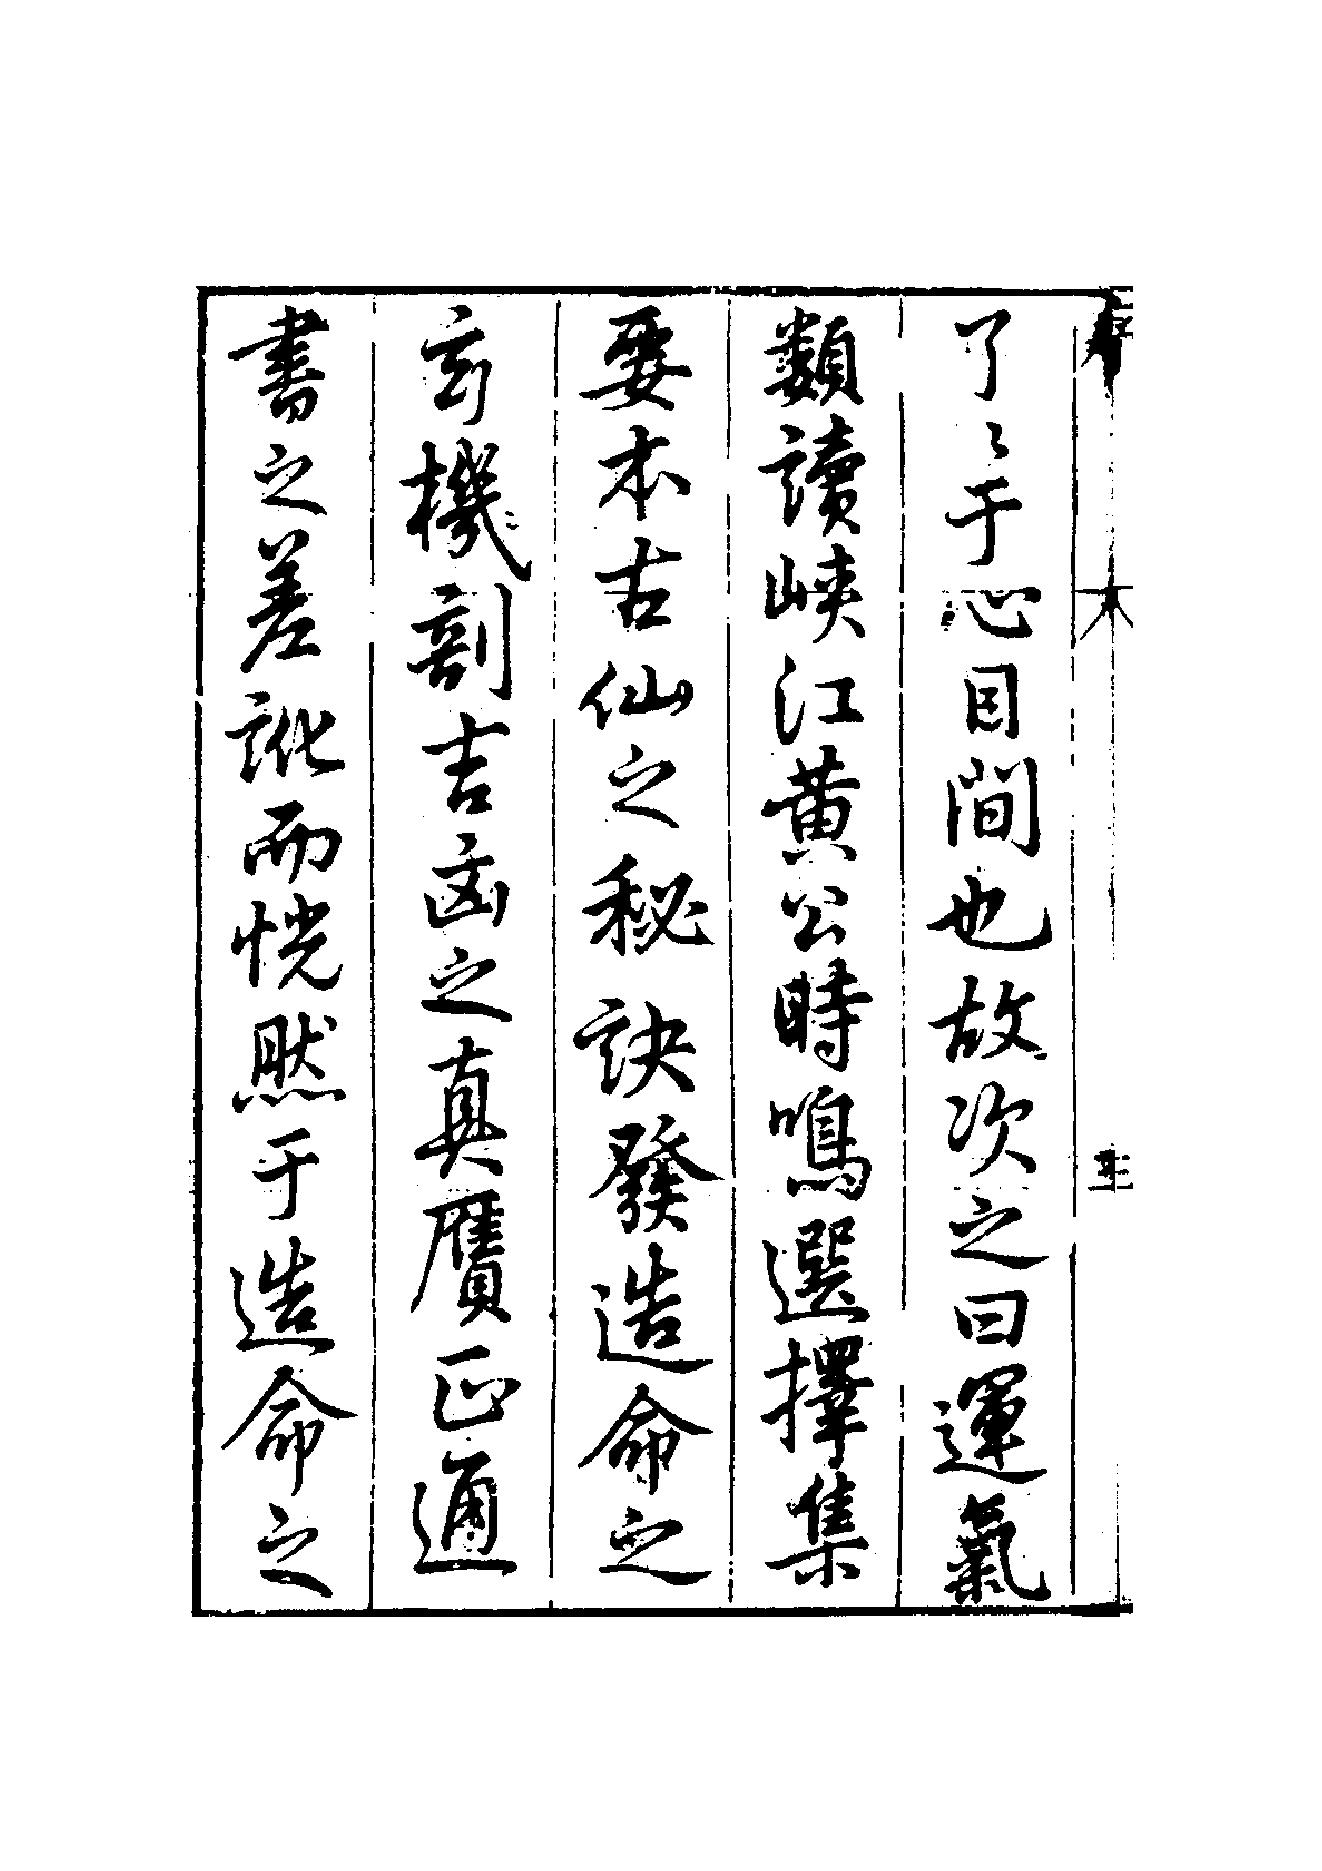 了〻于心目間也故次之曰運氣
類讀峽江黄公時鳴選擇集
要本古仙之秘訣發造命之
玄機剖吉凶之真贋正通
書之差訛而恍然于造命之